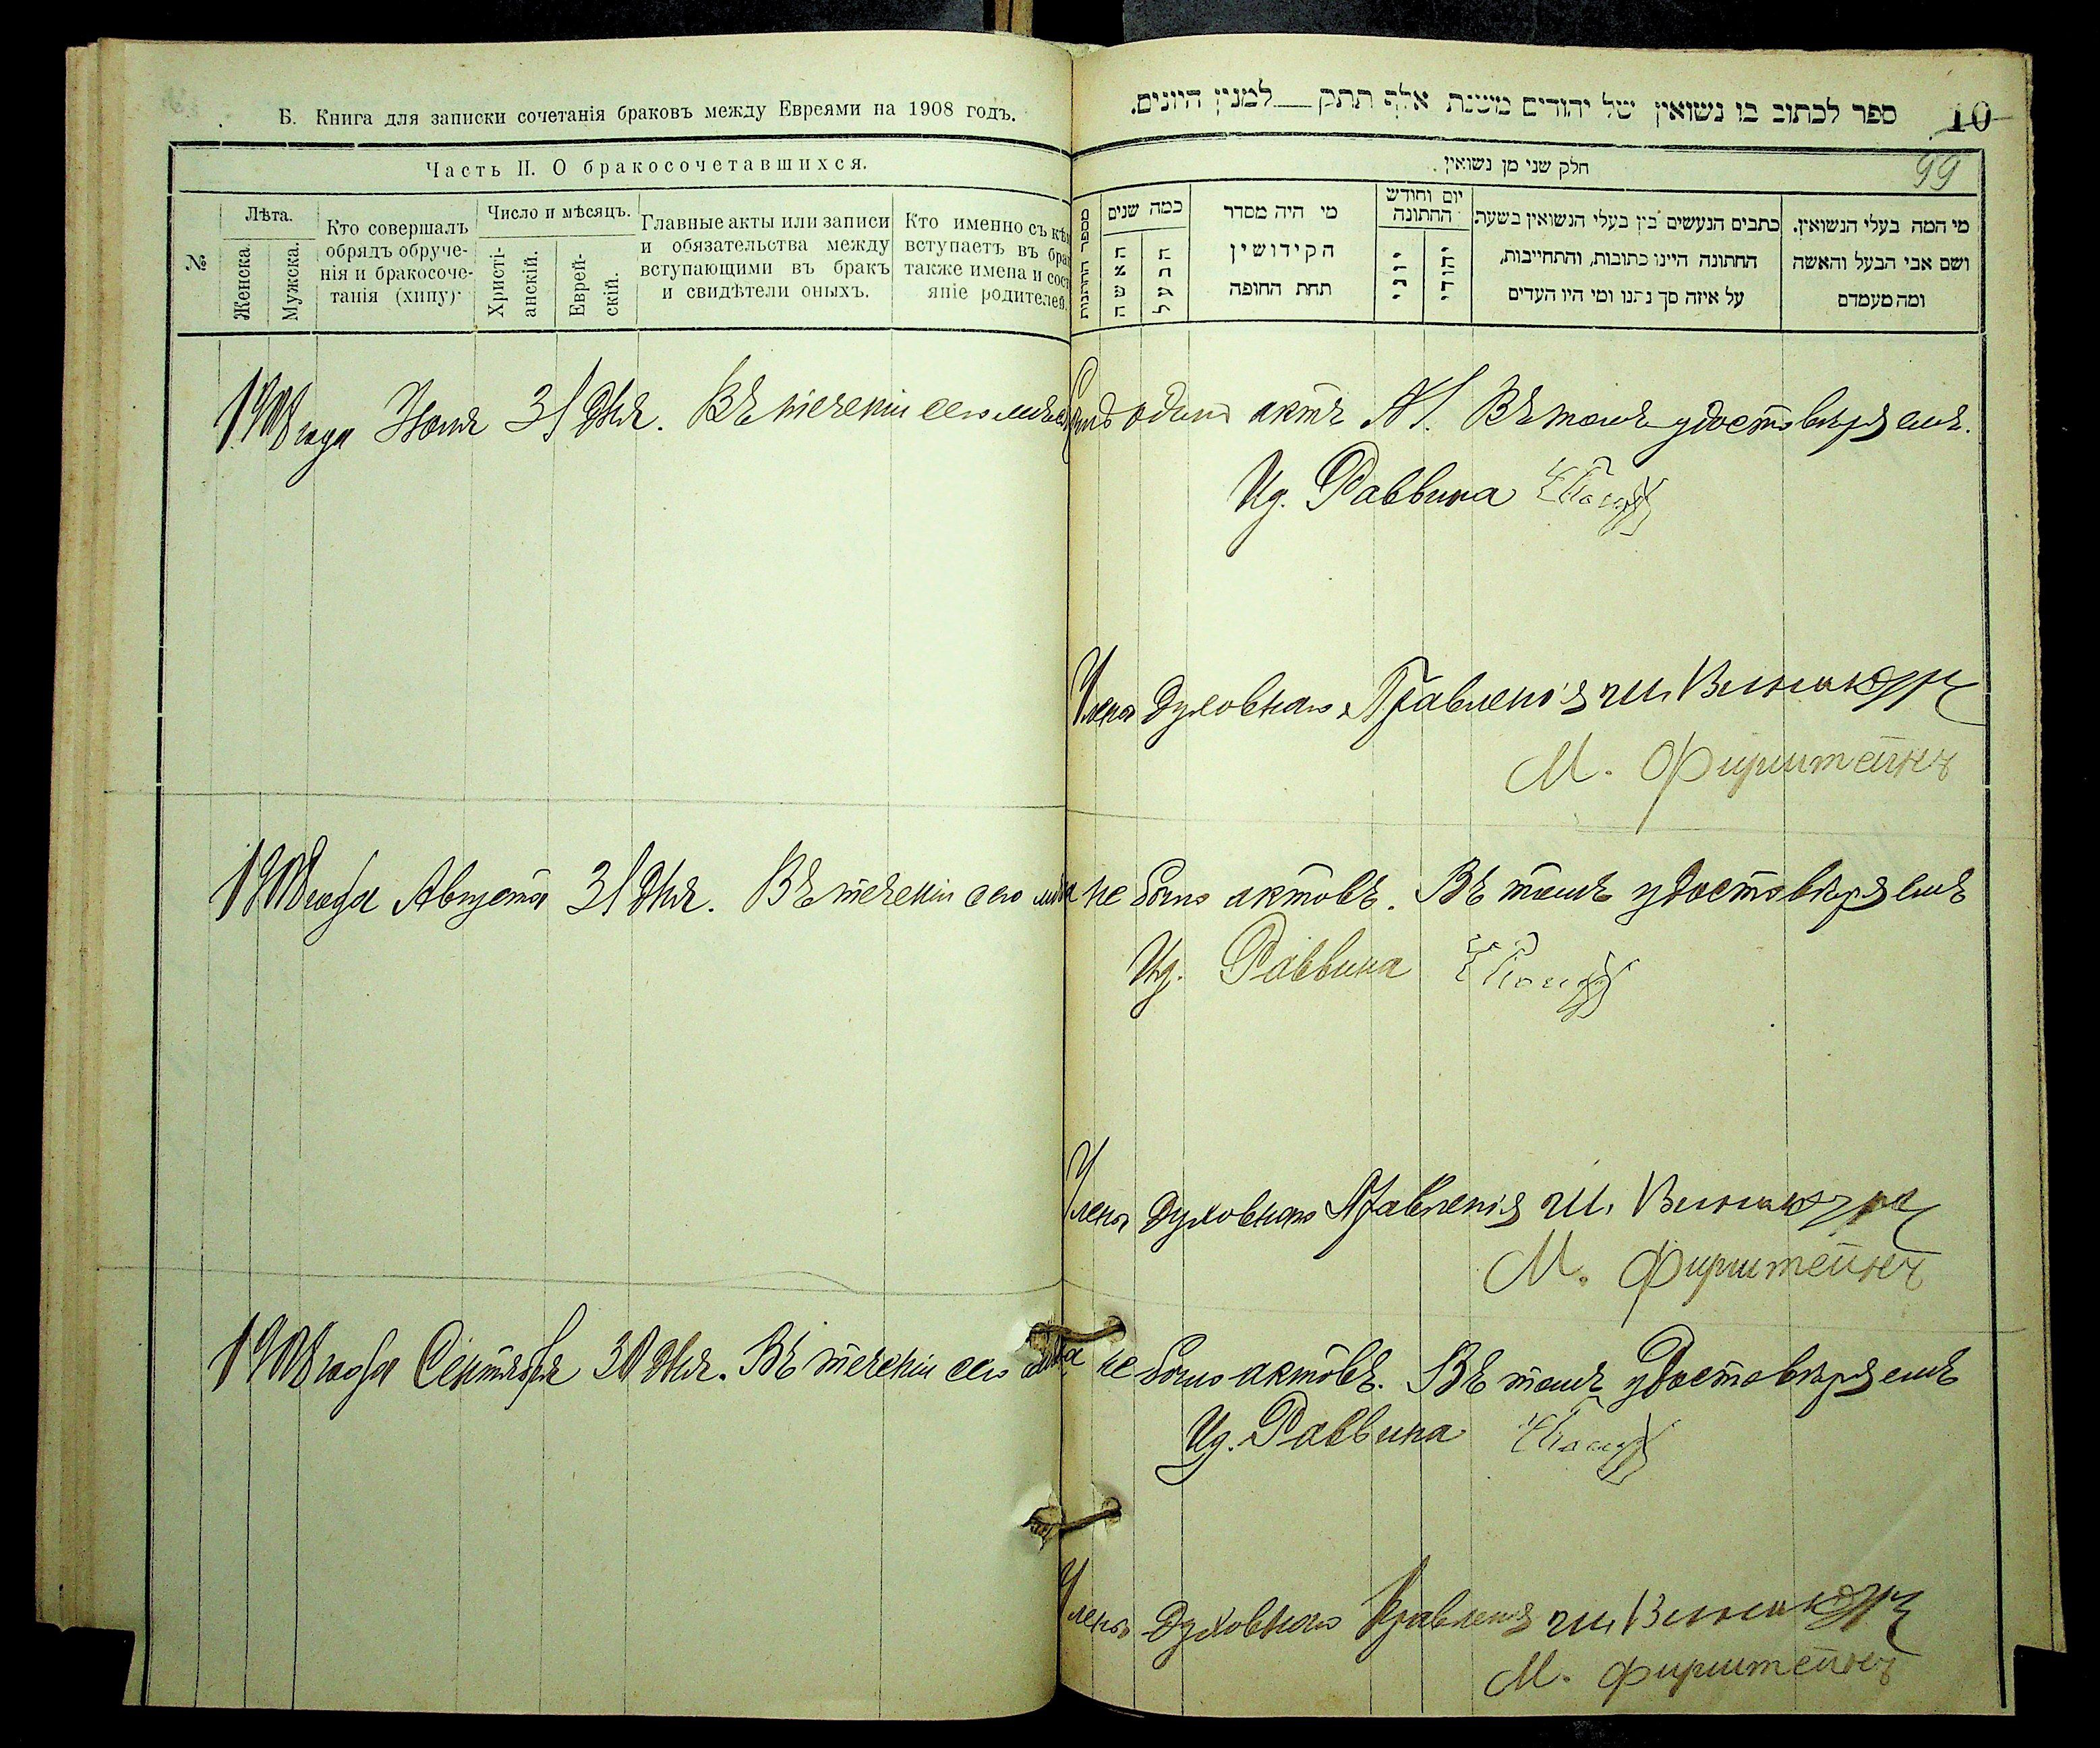 Б. Книга для записки сочетанія браковъ между Евреями на 1908 годъ.
Часть II. О бракосочетавшихся.
№
Лѣта.
Женска.
Мужска.
Кто совершалъ
обрядъ обруче-
нія и бракосоче-
танія (хипу)
Число и мѣсяцъ.
Христі-
анскій.
Еврей-
скій.
Главные акты или записи
и обязательства между
вступающими въ бракъ
и свидѣтели оныхъ.
Кто именно съ кѣм
вступаетъ въ бра
также имена и сост
яніе родителей.
ספר לכתוב בו נשואין של יהודים משנת אלף תתק למנין היונים.
10
99
חלק שני מן נשואין.
מספר החתונות
כמה שנים
האשה
הבעל
מי היה מסדר
הקידושין
תחת החופה
יום וחודש
החתונה
יוני
יהודי
כתבים הנעשים בין בעלי הנשואין בשעת
החתונה היינו כתובות, והתחייבות,
על איזה סך נתנו ומי היו העדים
מי המה בעלי הנשואין.
ושם אבי הבעל והאשה
ומה מעמדם
1908 года 31 дня. Въ теченіи сего одинъ актъ №1. Въ томъ удостовѣряемъ.
Ид. Раввина
Члены Духовнаго Правленія
М. Фирштейнъ
1908 года Августа 31 дня. Въ теченіи сего м-ца не было актовъ. Въ томъ удостовѣряемъ
Ид. Раввина
Члены Духовнаго Правленія
М. Фирштейнъ
1908 года Сентября 30 дня. Въ теченіи сего м-ца не было актовъ. Въ томъ удостовѣряемъ
Ид. Раввина
Члены Духовнаго Правленія
М. Фирштейнъ